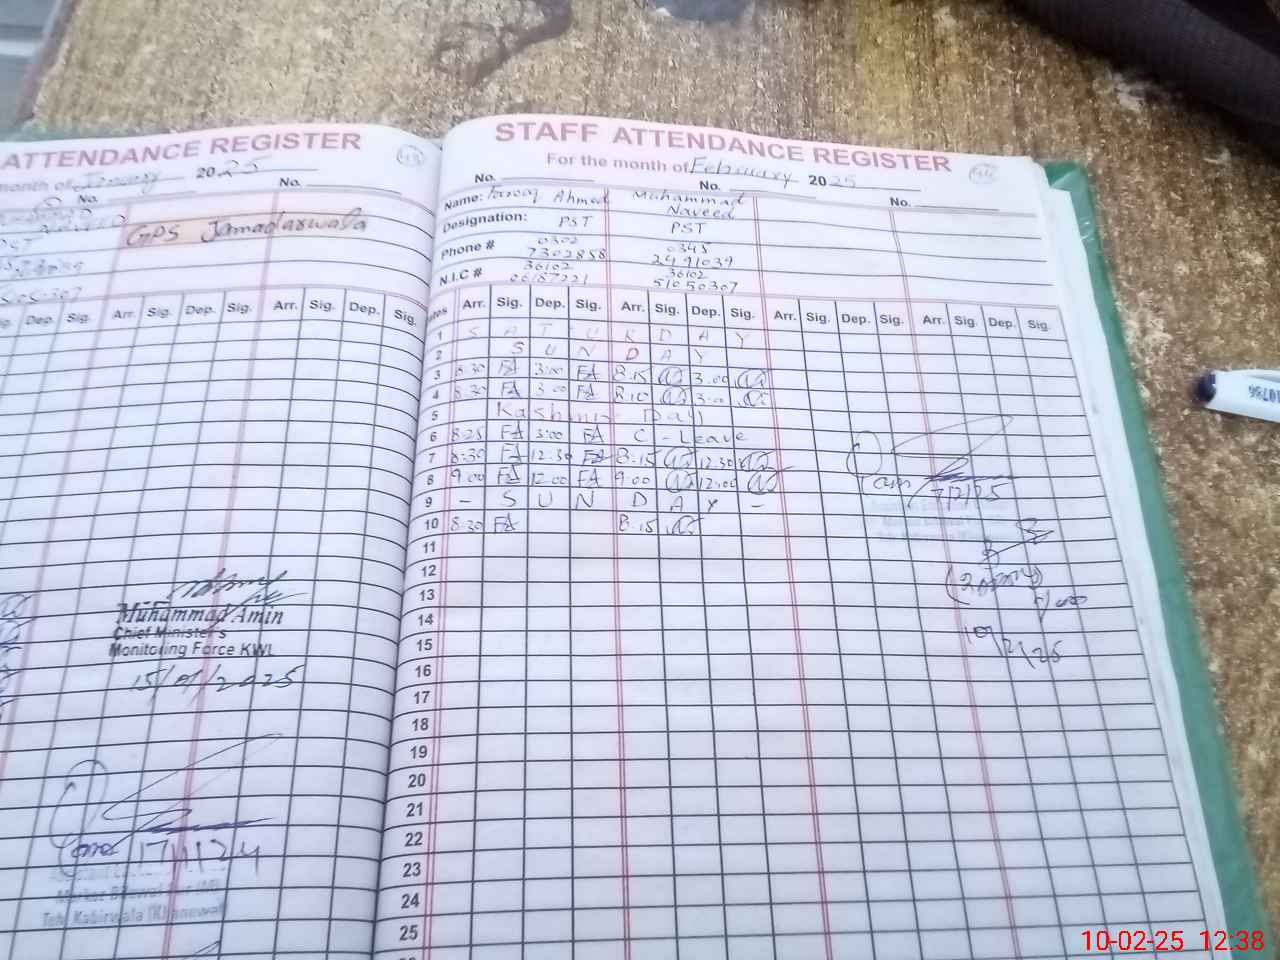 ATTENDANCE REGISTER
month of January 2025
No.
GPS Jamadarswala
PST
Dep. Sig. Arr. Sig. Dep. Sig. Arr. Sig. Dep. Sig.
Muhammad Amin
Chief Minister's
Monitoring Force KWL
15/01/2025
Tehi Kabirwala (Khanewal
STAFF ATTENDANCE REGISTER
For the month of February 2025
No. No. No.
Name: Farooq Ahmed Muhammad Naveed
Designation: PST PST
Phone # 0302 7302858 0345 2491039
N.I.C # 36102 06187221 36102 51050307
Arr. Sig. Dep. Sig. Arr. Sig. Dep. Sig. Arr. Sig. Dep. Sig. Arr. Sig. Dep. Sig.
1 S A T U R D A Y
2 S U N D A Y
3 8:30 FA 3:00 FA 8.15 3.00
4 8:30 FA 3:00 FA 8.10 3:00
5 Kashmir Day
6 8:25 FA 3:00 FA C - Leave
7 8:30 FA 12:30 FA 8.15 12.30
8 9:00 FA 12:00 FA 9:00 12:00
9 - S U N D A Y -
10 8:30 FA 8.15
11
12
13
14
15
16
17
18
19
20
21
22
23
24
25
7/2/25
10/2/25
10-02-25 12:38